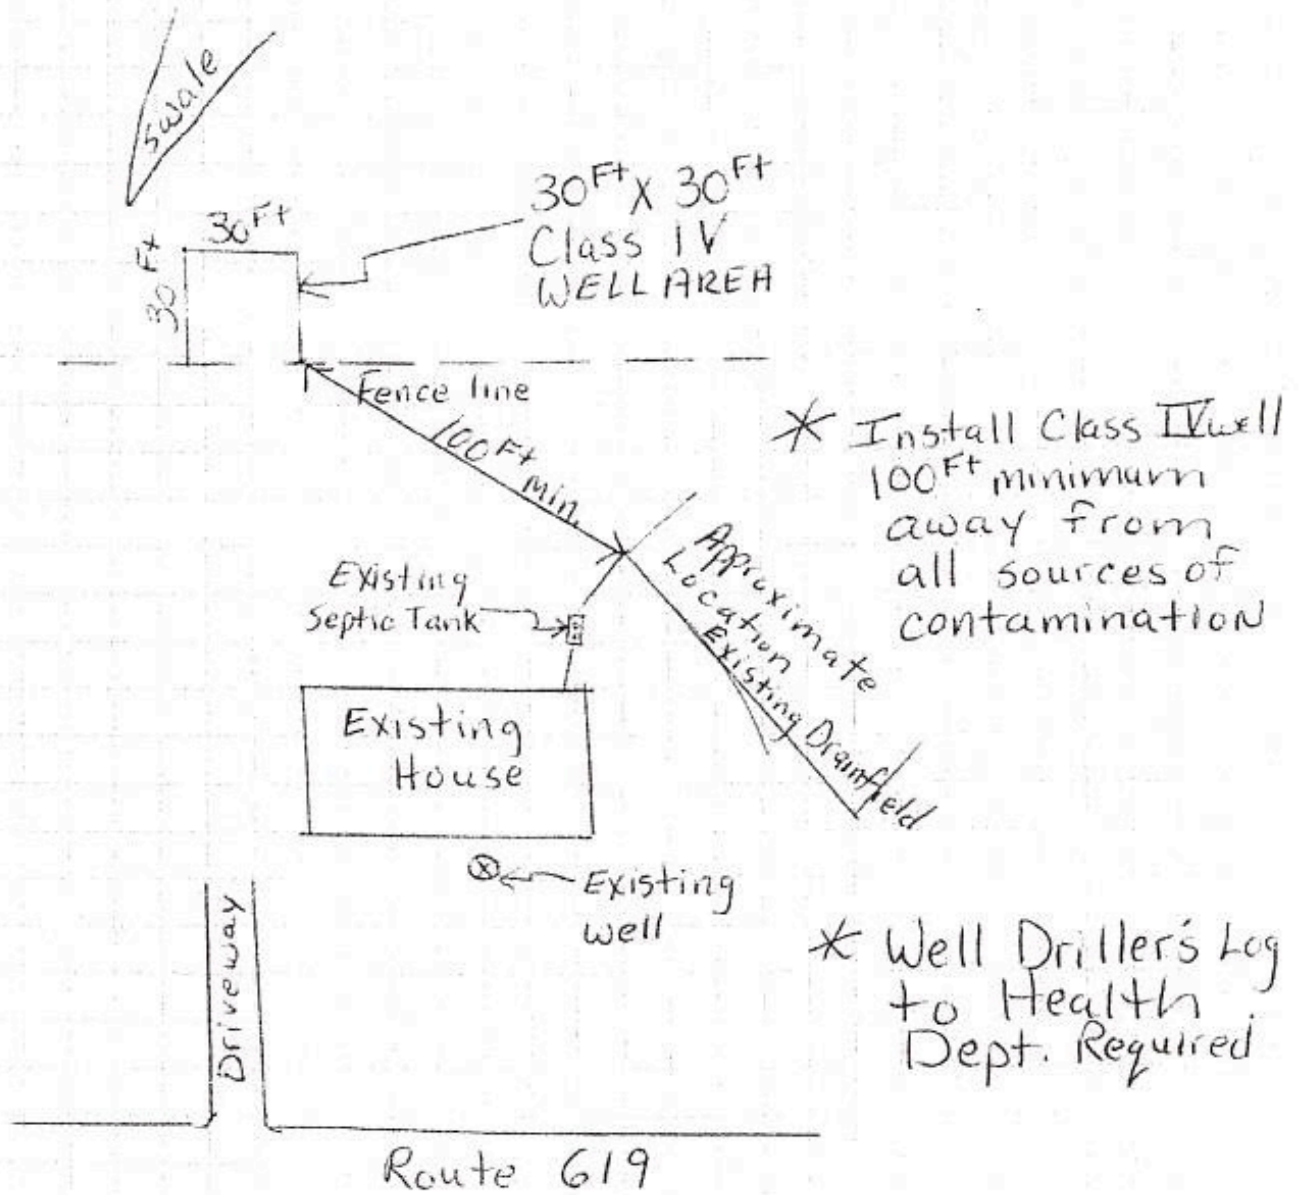 swale
30 Ft
30 Ft
30 Ft X 30 Ft
Class IV
WELL AREA
Fence line
100 Ft
Min.
* Install Class IV well
100 Ft minimum
away from
all sources of
contamination
Existing
Septic Tank
Approximate
Location
Existing Drainfield
Existing
House
Existing
well
Driveway
* Well Driller's Log
to Health
Dept. Required
Route 619